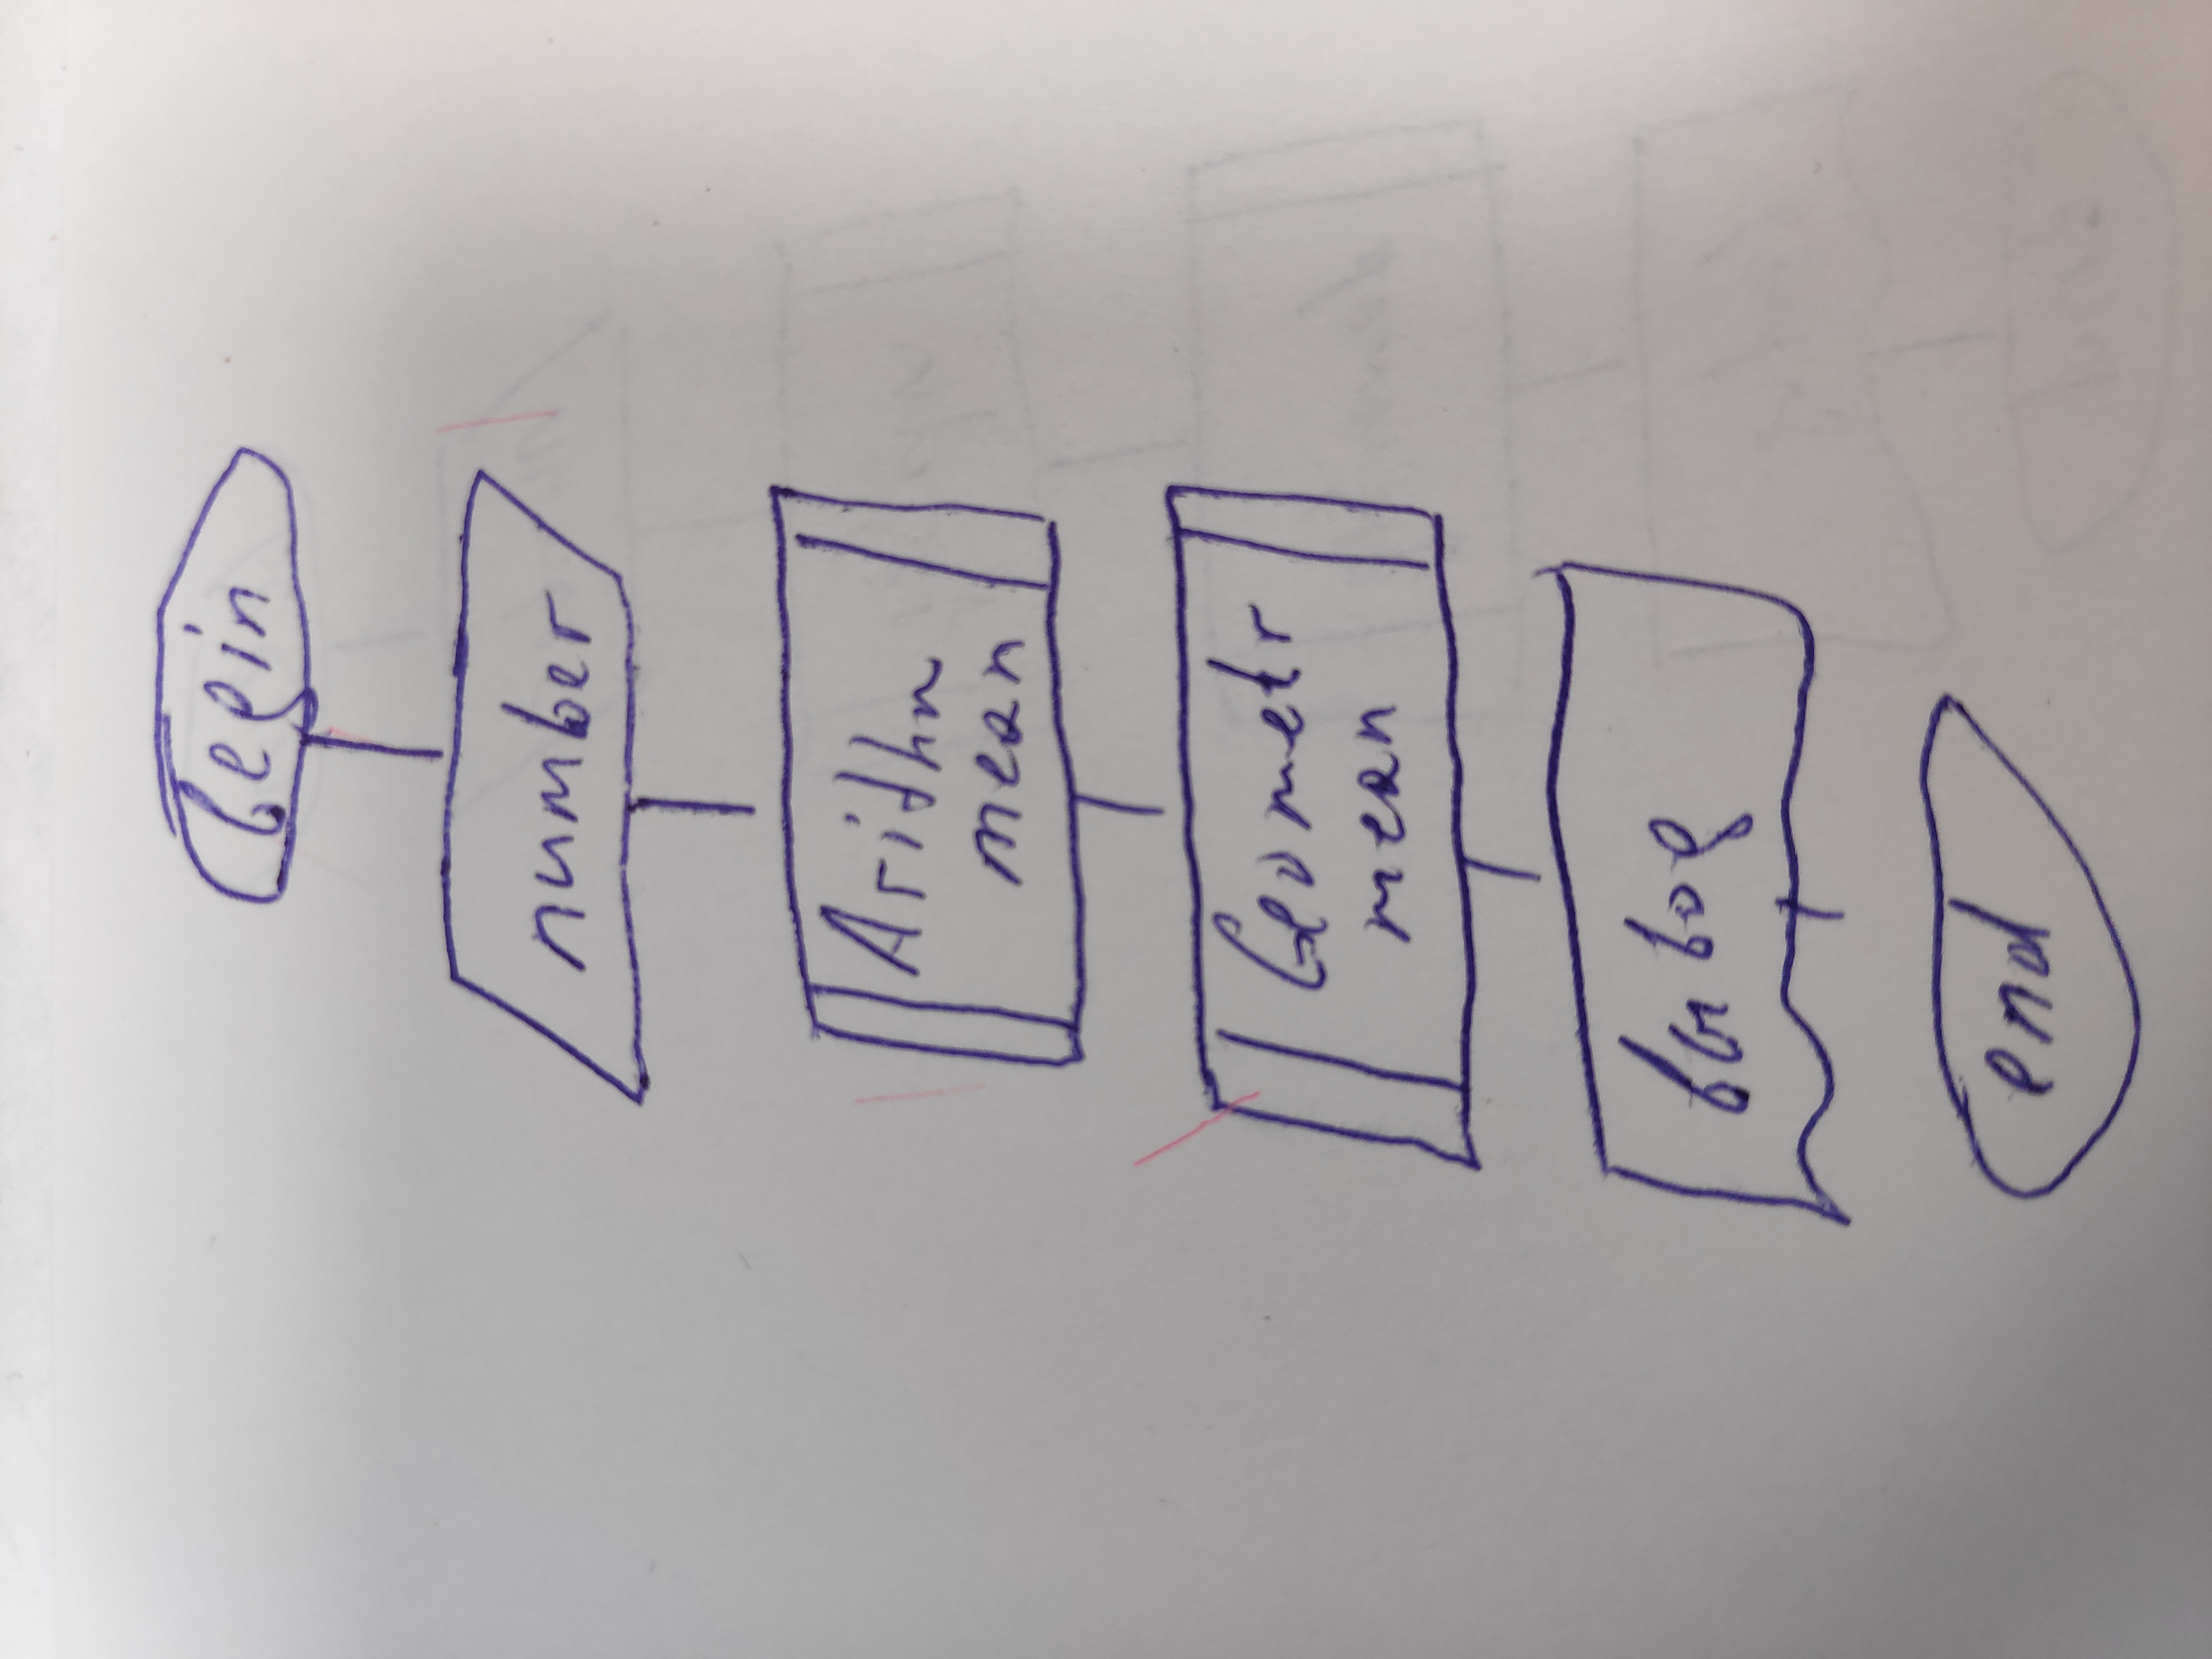 begin
number
Arithm
mean
Geometr
mean
вывод
end